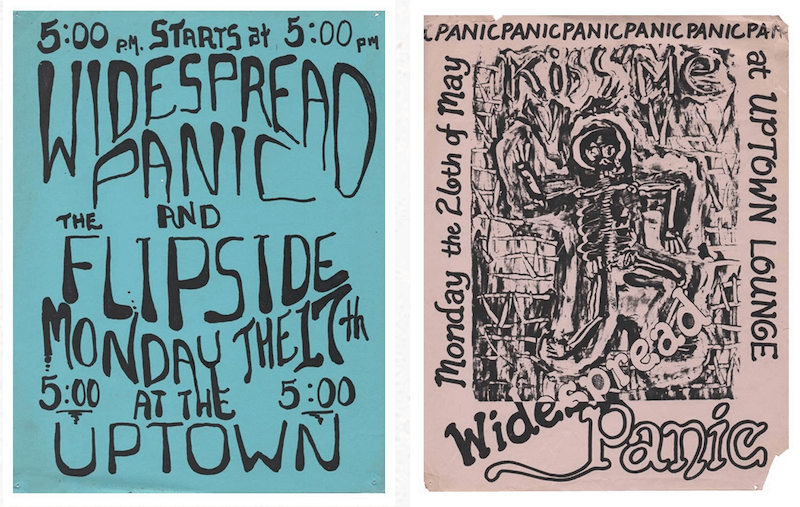 5:00 P.M. STARTS at 5:00 pm
WIDESPREAD
PANIC
THE AND
FLIPSIDE
MONDAY THE 17th
5:00 AT THE 5:00
UPTOWN
PANICPANICPANICPANICPANICPAN
KiSS ME
Monday the 26th of May
at UPTOWN LOUNGE
Widespread
Panic